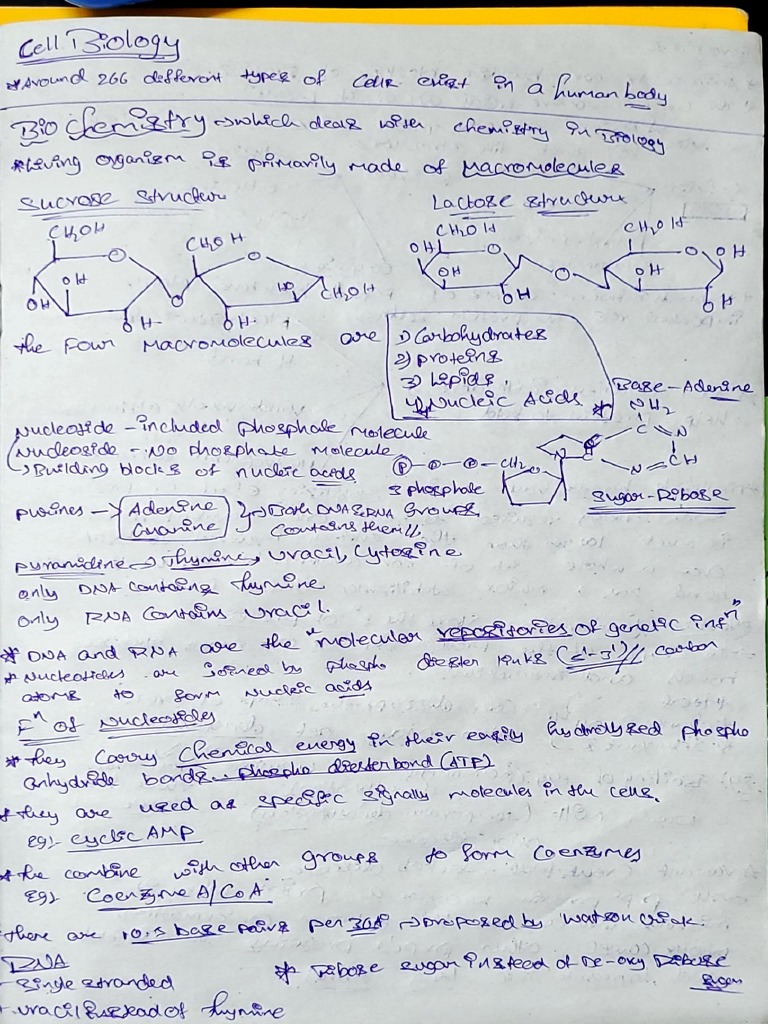 Cell Biology
*Around 266 different types of cells exist in a human body
Bio chemistry → which deals with chemistry in Biology
*Living organism is primarily made of Macromolecules
Sucrose structure
Lactose structure
CH2OH CH2OH CH2OH CH2OH
O O OH O O OH
OH OH HO CH2OH OH O OH
OH O OH OH OH OH
the Four Macromolecules are
1) Carbohydrates
2) proteins
3) Lipids
4) Nucleic Acids *
Base-Adenine
NH2
C N
N C CH
N
Nucleotide - included phosphate molecule
Nucleoside - No phosphate molecule
→ Building blocks of nucleic acids
P - P - P - CH2 O
3 phosphate Groups
Sugar-Ribose
purines → Adenine
Guanine
} → Both DNA & RNA
Contains them//
pyramidine → Thymine, Uracil, Cytosine
only DNA contains thymine
only RNA contains Uracil.
* DNA and RNA are the "molecular repositories of genetic infn"
* Nucleotides are joined by phospho diester links (5'-3')// carbon
atoms to form nucleic acids
Fn of Nucleotides
* they carry chemical energy in their easily hydrolysed phospho
anhydride bonds phospho diester bond (ATP)
* they are used as specific signally molecules in the cells.
eg:- cyclic AMP
* the combine with other groups to form Coenzymes
eg:- Coenzyme A/CoA
there are 10.5 base pairs per 36A° → proposed by Watson crick.
DNA
- Single stranded
* Ribose sugar instead of De-oxy Ribose
sugar
- uracil instead of thymine